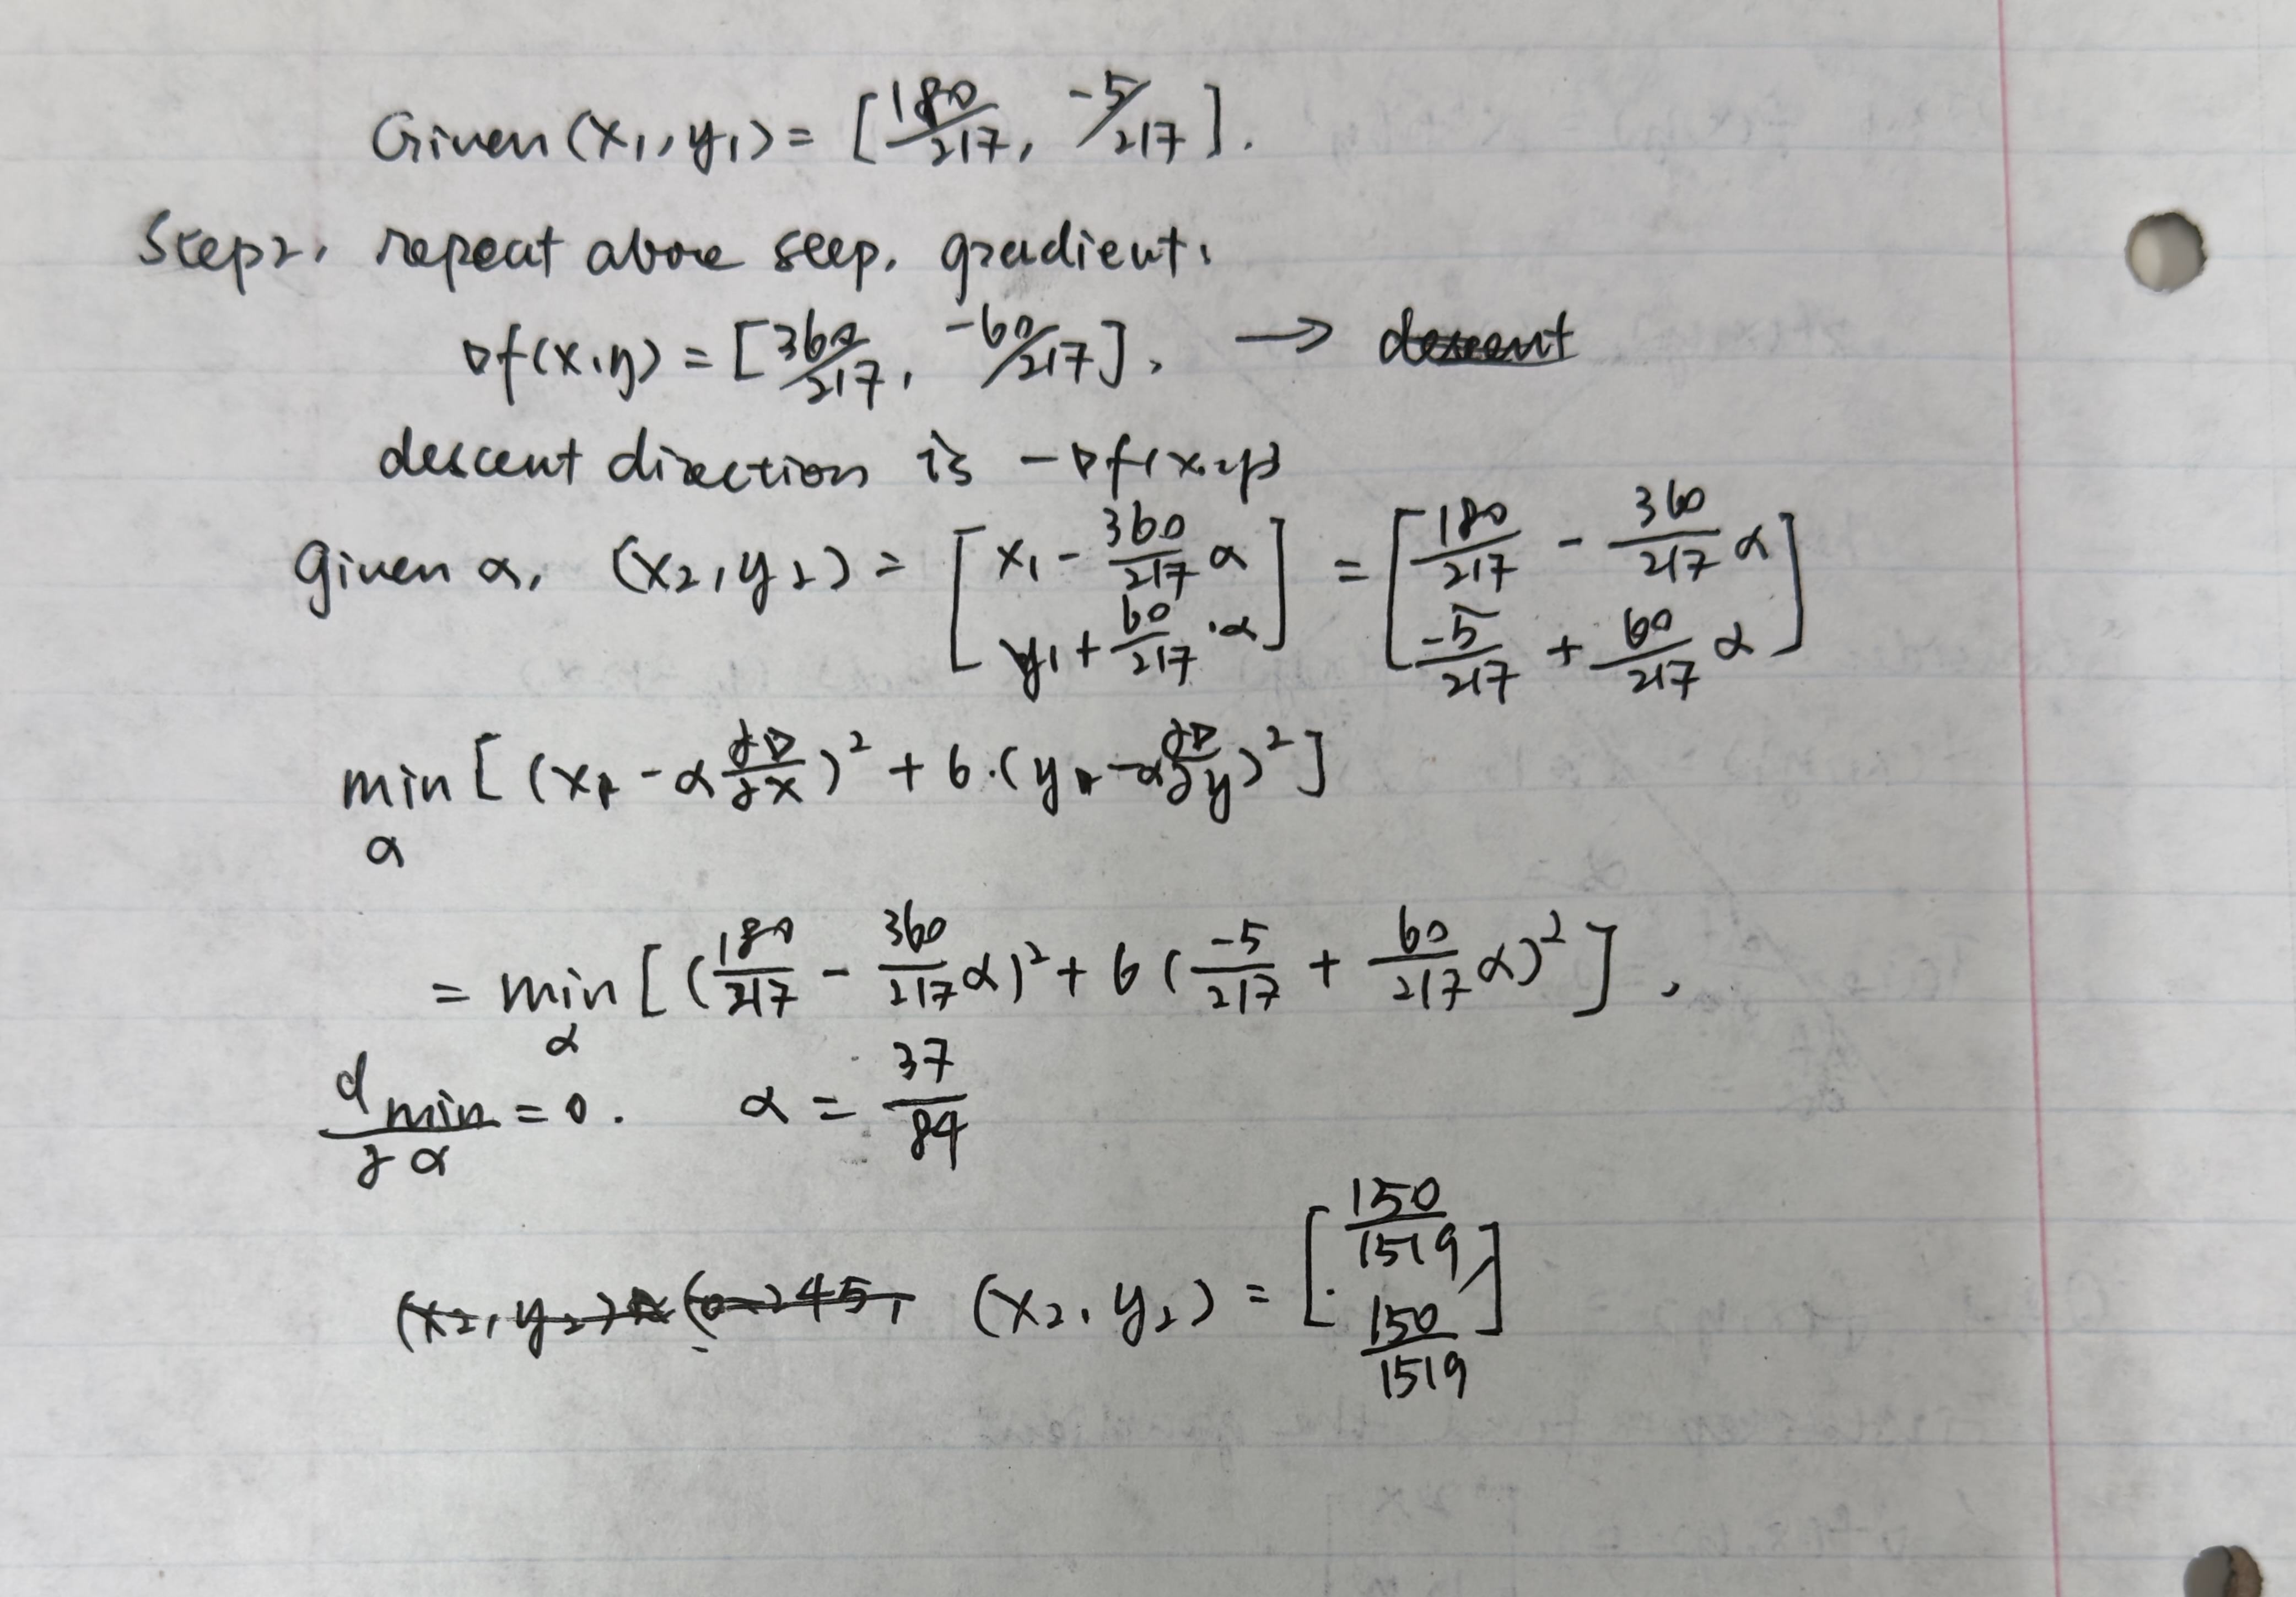 Given (x₁, y₁) = [180/217, -5/217].
Step2. repeat above seep. gradient.
∇f(x,y) = [360/217, -60/217]. → descent
descent direction is -∇f(x,y)
Given α, (x₂, y₂) = [x₁ - 360/217 α, y₁ + 60/217 · α] = [180/217 - 360/217 α, -5/217 + 60/217 α]
min α [(x₁ - α ∂∇/∂x)² + 6·(y₁ - α ∂∇/∂y)²]
= min α [(180/217 - 360/217 α)² + 6(-5/217 + 60/217 α)²],
d min/∂α = 0. α = 37/84
(x₂, y₂) = [150/1519, 150/1519]